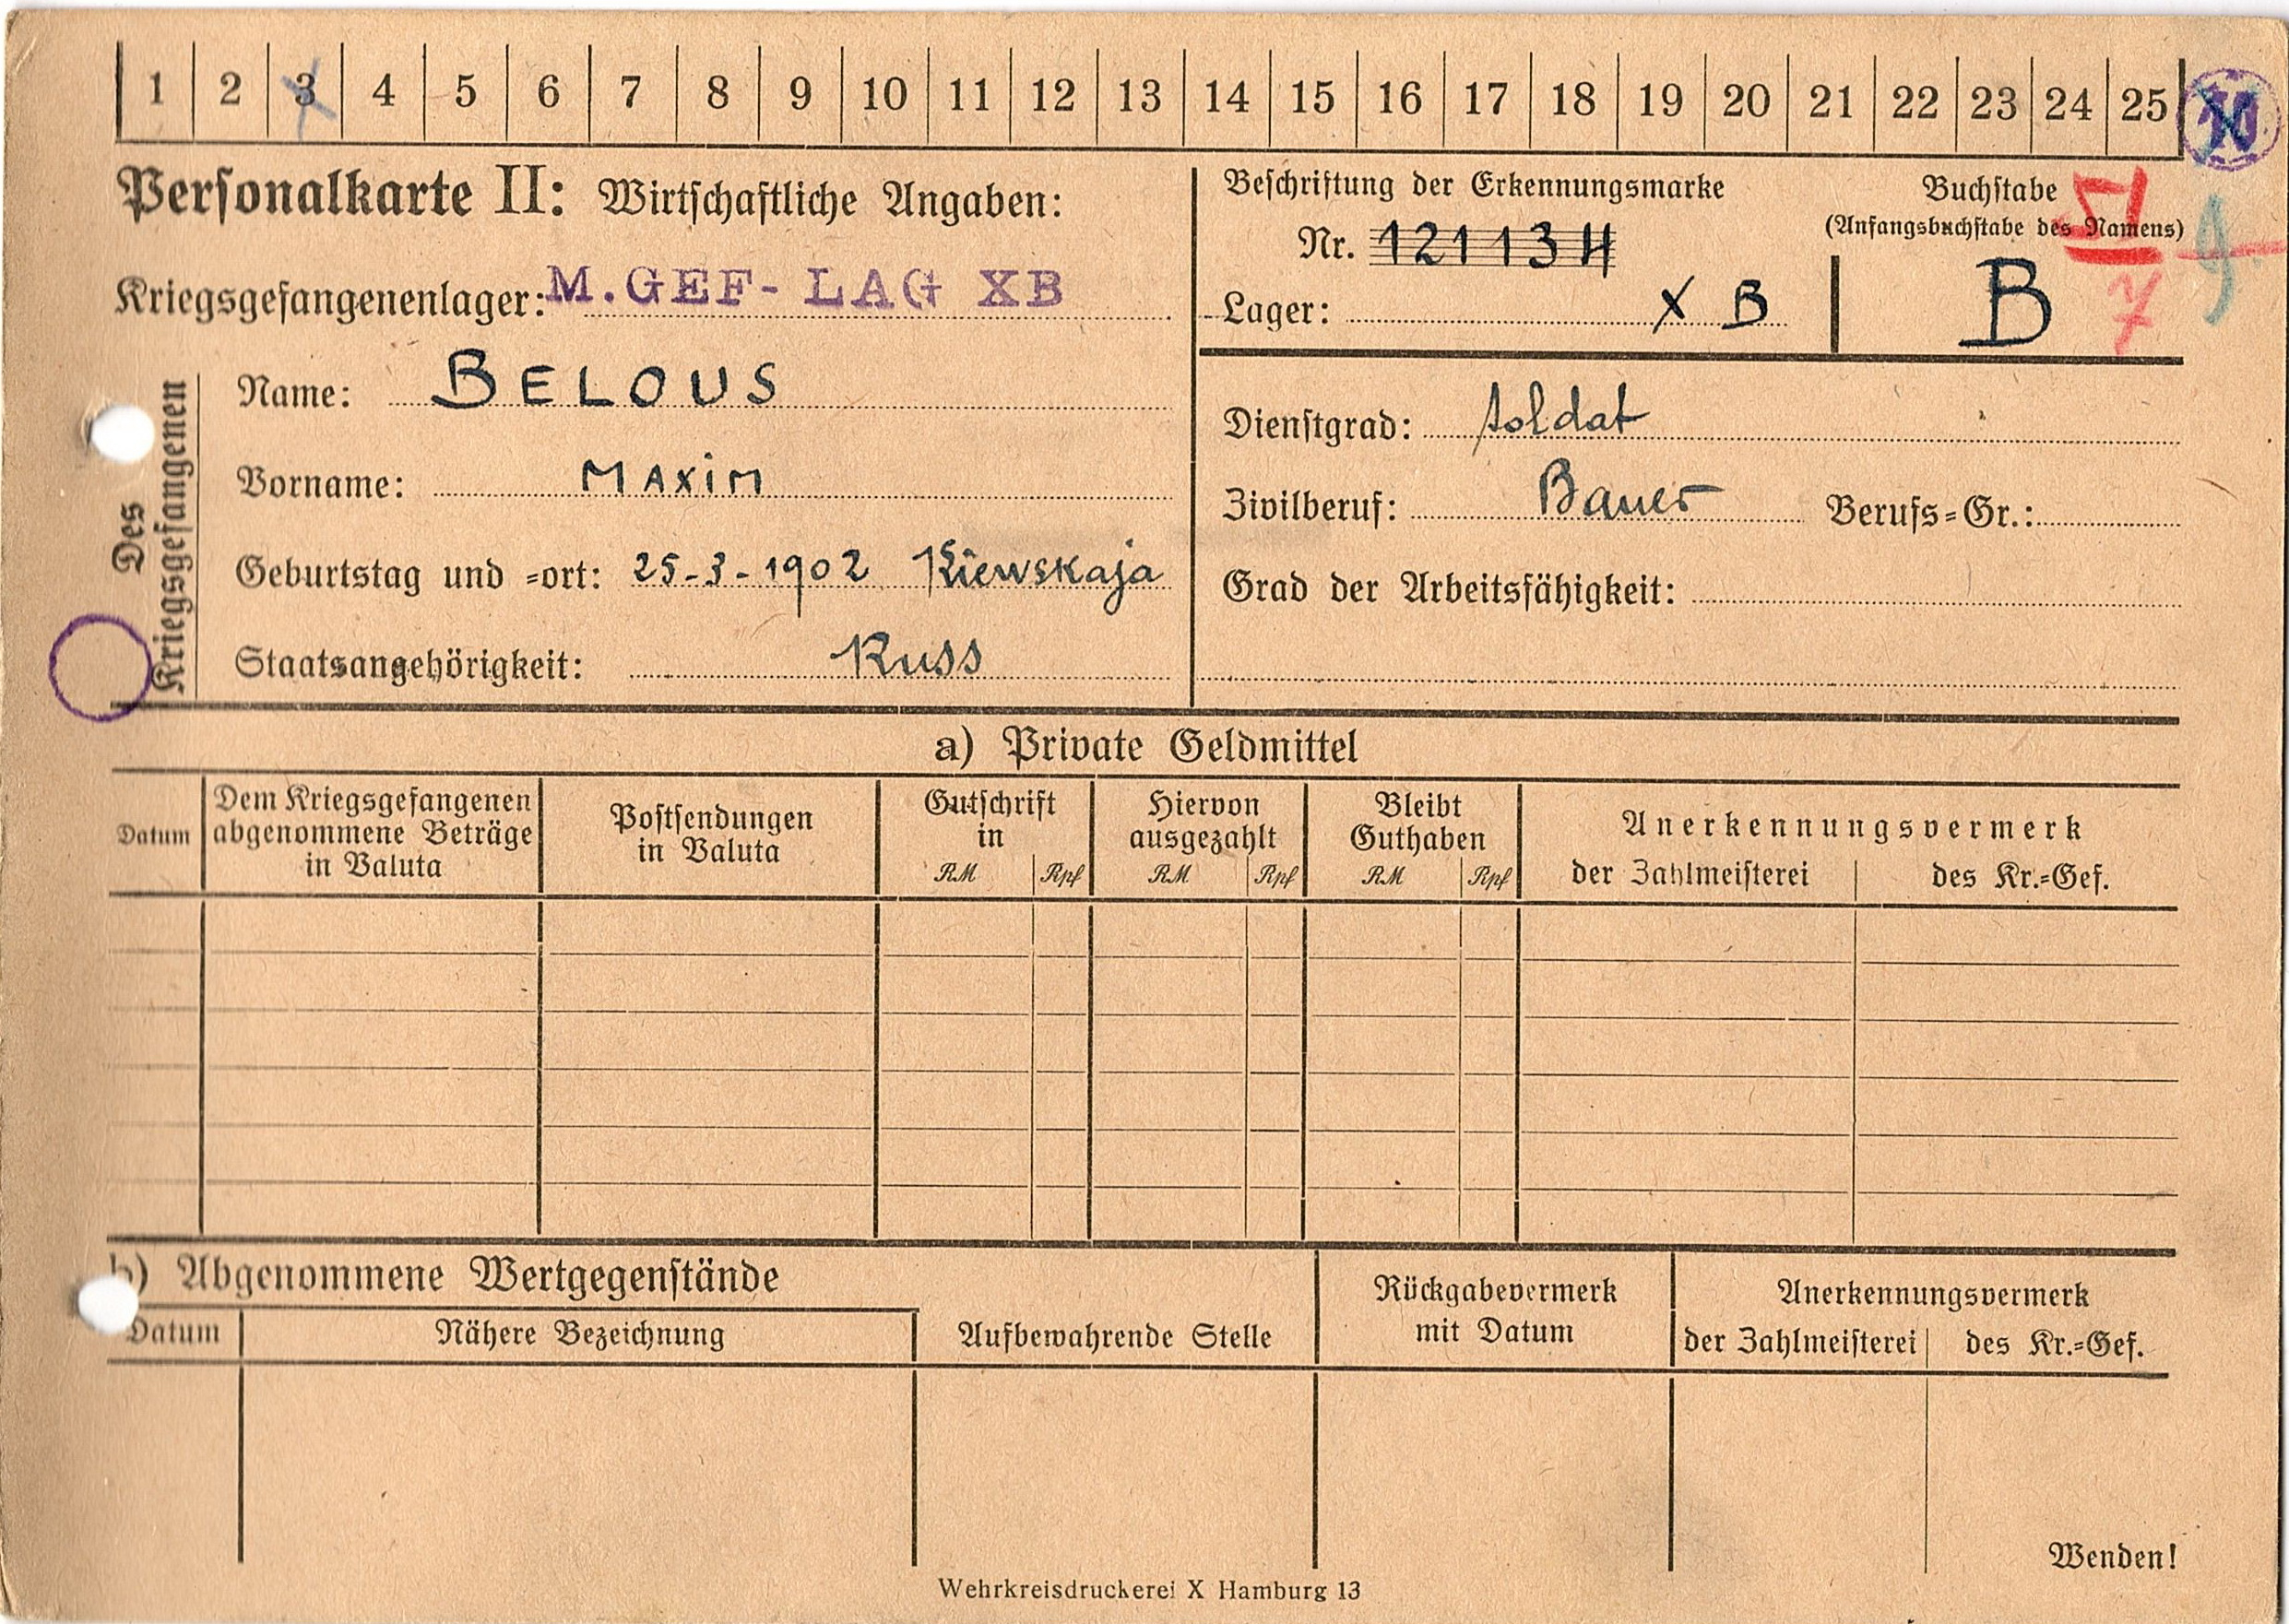 1 2 3 4 5 6 7 8 9 10 11 12 13 14 15 16 17 18 19 20 21 22 23 24 25
Personalkarte II: Wirtschaftliche Angaben:
Beschriftung der Erkennungsmarke
Nr. 121134
Lager: X B
Buchstabe
(Anfangsbuchstabe des Namens)
B
Kriegsgefangenenlager: M.GEF- LAG XB
Des
Kriegsgefangenen
Name: BELOUS
Vorname: MAXIM
Geburtstag und =ort: 25-3-1902 Kiewskaja
Staatsangehörigkeit: Russ
Dienstgrad: soldat
Zivilberuf: Bauer Berufs=Gr.:
Grad der Arbeitsfähigkeit:
a) Private Geldmittel
Datum
Dem Kriegsgefangenen
abgenommene Beträge
in Valuta
Postsendungen
in Valuta
Gutschrift
in
RM Rpf
Hiervon
ausgezahlt
RM Rpf
Bleibt
Guthaben
RM Rpf
Anerkennungsvermerk
der Zahlmeisterei des Kr.=Gef.
b) Abgenommene Wertgegenstände
Datum Nähere Bezeichnung
Aufbewahrende Stelle
Rückgabevermerk
mit Datum
Anerkennungsvermerk
der Zahlmeisterei des Kr.=Gef.
Wenden!
Wehrkreisdruckerei X Hamburg 13